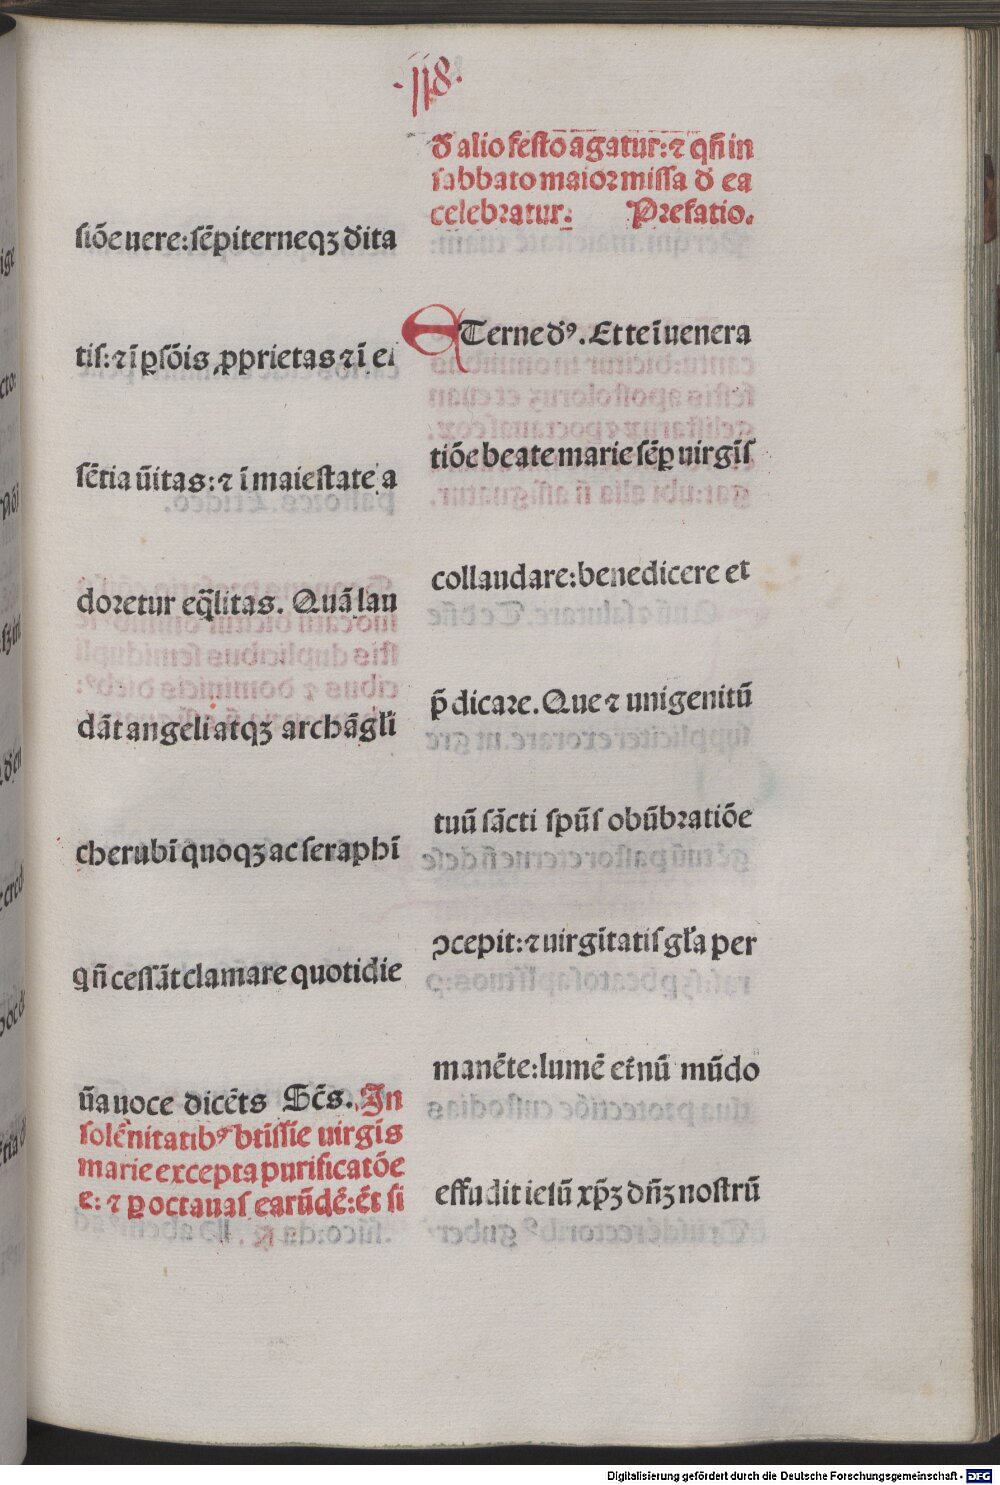 ·118·
siõe uere:sẽpiterneqꝫ ďita
tis:⁊ ĩ ꝑsõis ꝓprietas ⁊ ĩ eſ
sẽtia ũitas:⁊ ĩ maiestate a
doꝛetur eq̃litas. Quã lau
dãt angeli atqꝫ archãgli
cherubĩ quoqꝫ ac seraphĩ
q ñ cessãt clamare quotidie
ũa uoce dicẽts Sc̃s. In
solẽnitatibꝰ btissĩe uirgĩs
marie excepta purificatõe
e: ⁊ ꝑ octauas earũdẽ: ẽt si
ď alio festo agatur:⁊ qñ in
sabbato maioꝛ missa ď ea
celebꝛatur: Prefatio.
ETerne ďꝰ. Et te ĩ uenera
tiõe beate marie sẽꝑ uirgĩs
collaudare:benedicere et
p̃dicaꝛe. Que ⁊ unigenitũ
tuũ sãcti spũs obũbꝛatiõe
ↄcepit:⁊ uirgĩtatis gľa per
manẽte:lumẽ et̃nũ mũdo
effudit iesũ xp̃ꝫ dñꝫ nostrũ
Digitalisierung gefördert durch die Deutsche Forschungsgemeinschaft - DFG